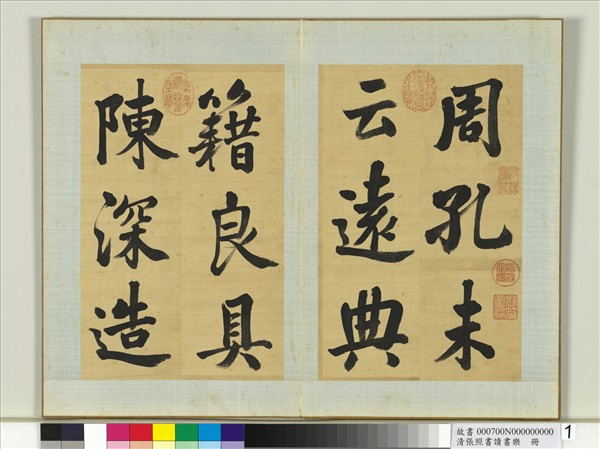 周孔未
云遠典
籍良具
陳深造
故書 000700N000000000
清張照書讀書樂 冊
1